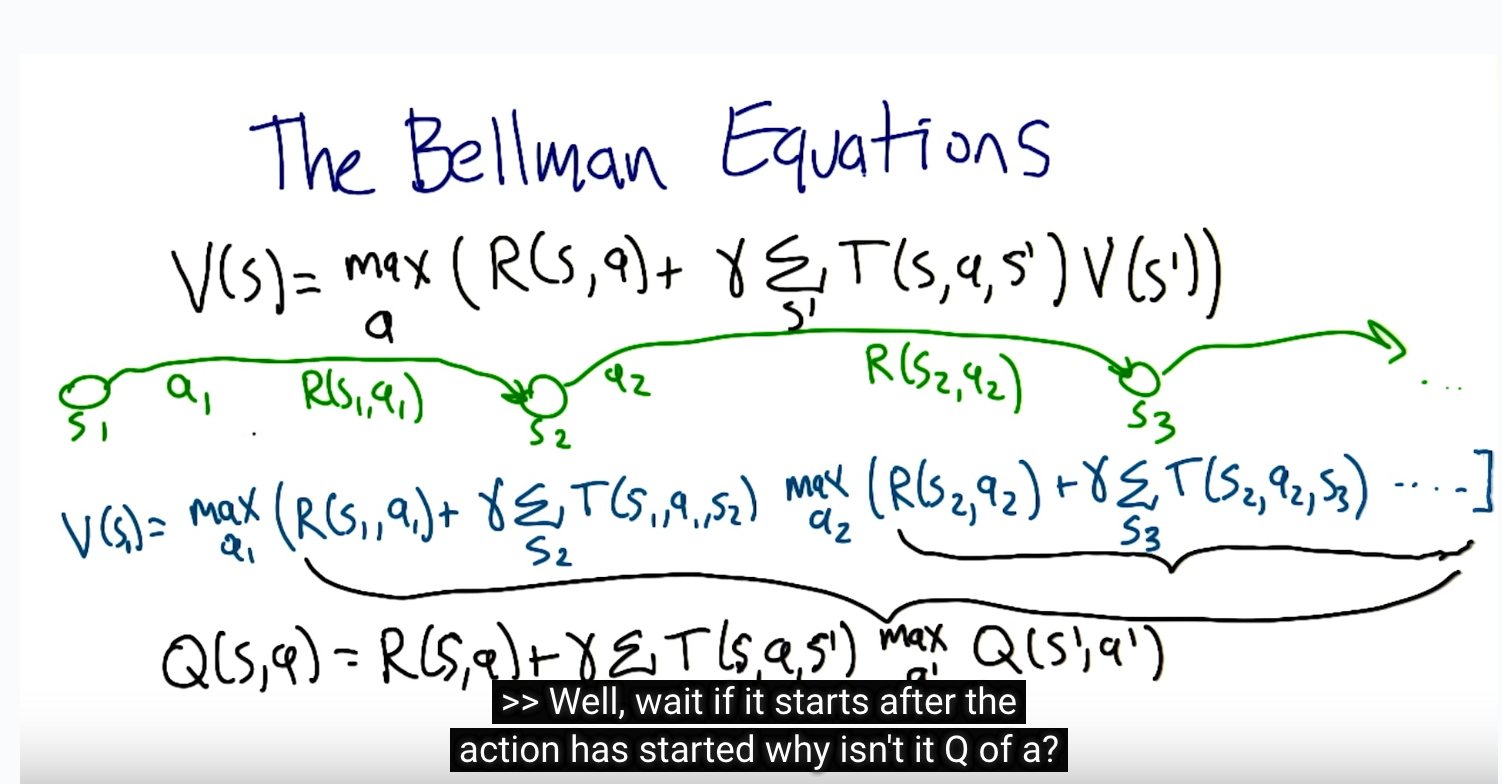 The Bellman Equations
V(s)= max (R(s,a)+ γ Σ T(s,a,s')V(s'))
a s'
a₁ R(s₁,a₁) a₂ R(s₂,a₂) ...
s₁ s₂ s₃
V(s₁)= max (R(s₁,a₁)+ γ Σ T(s₁,a₁,s₂) max (R(s₂,a₂)+γ Σ T(s₂,a₂,s₃) .....]
a₁ s₂ a₂ s₃
Q(s,a) = R(s,a)+γ Σ T(s,a,s') max Q(s',a')
a'
>> Well, wait if it starts after the
action has started why isn't it Q of a?